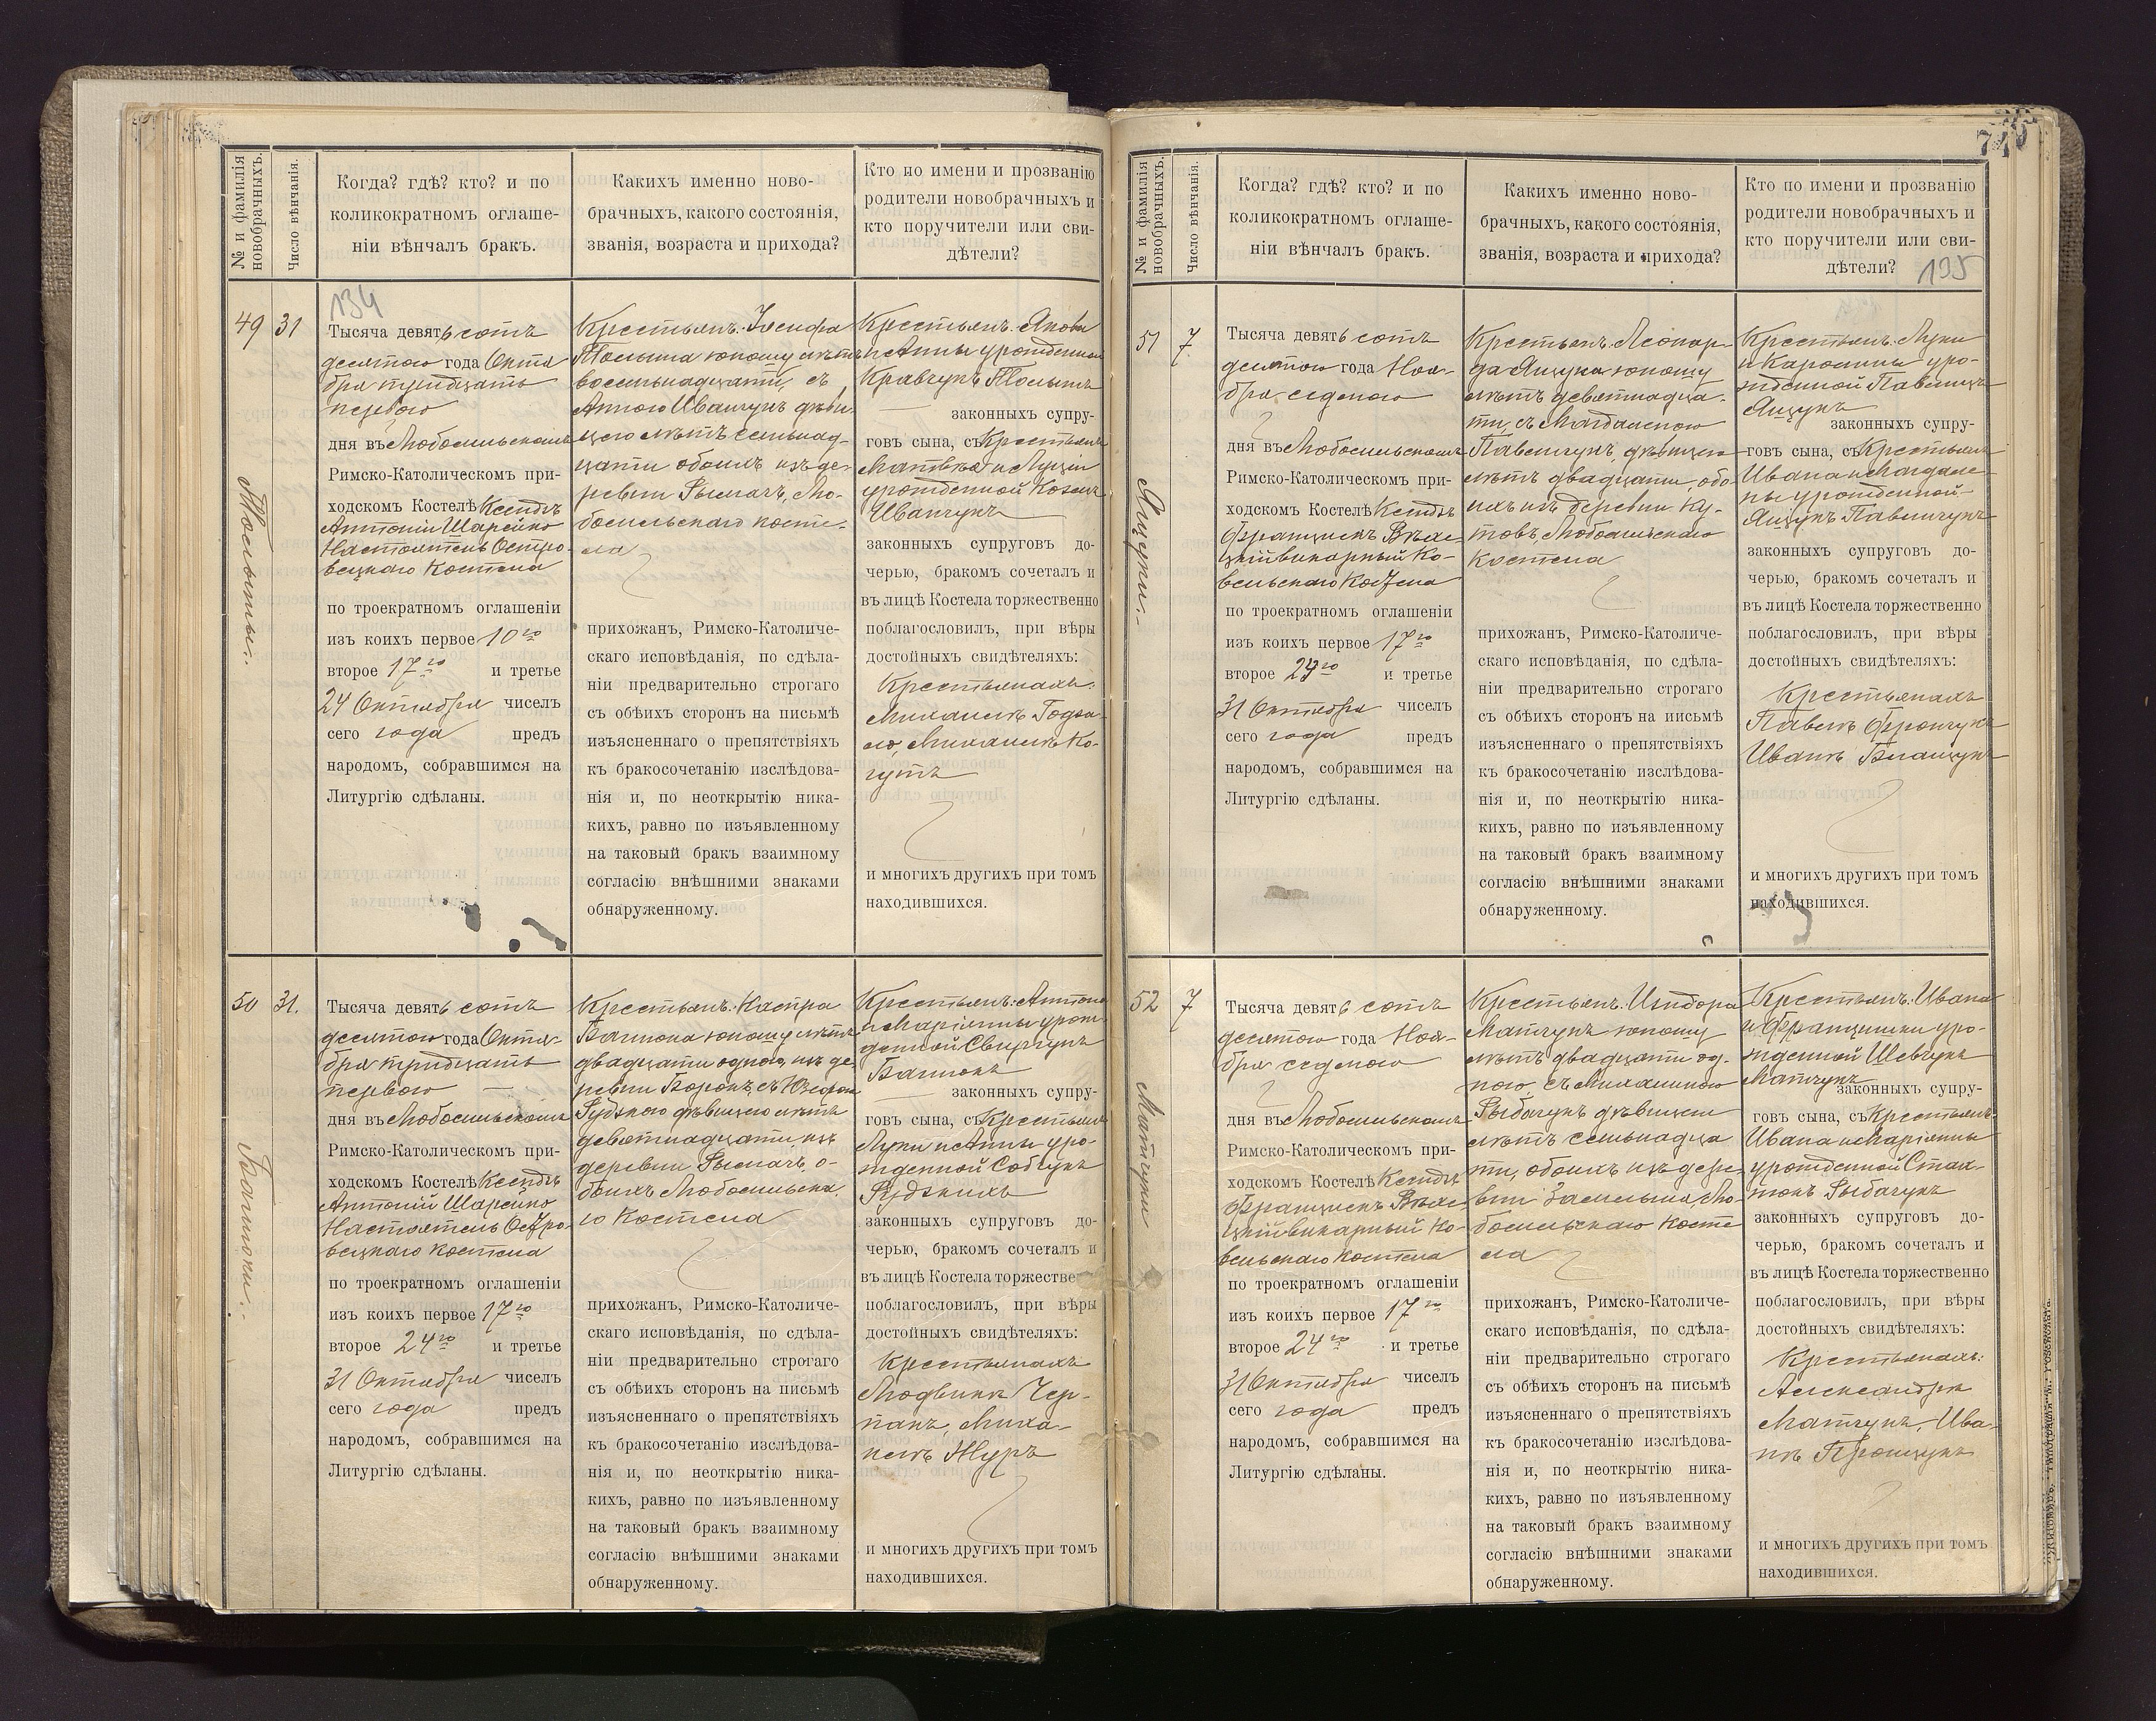 № и фамилія
новобрачныхъ.
Число вѣнчанія.
Когда? гдѣ? кто? и по
коликократномъ оглаше-
ніи вѣнчалъ бракъ.
Какихъ именно ново-
брачныхъ, какого состоянія,
званія, возраста и прихода?
Кто по имени и прозванію
родители новобрачныхъ и
кто поручители или сви-
дѣтели?
134
49
31
Тысяча девятьсотъ
десятого года Октя
бря тридцать
первого
дня въ Любомльскомъ
Римско-Католическомъ при-
ходскомъ Костелѣ Ксендзъ
Антоній Шарейко
Настоятель Остро-
вецкаго Костела
по троекратномъ оглашеніи
изъ коихъ первое 10го
второе 17го и третье
24 Октября чиселъ
сего года предъ
народомъ, собравшимся на
Литургію сдѣланы.
Крестьянъ: Іосифа
юношу лѣтъ
восемьнадцати, съ
Анною Иванчукъ дѣви-
цею лѣтъ семьнад-
цати обоихъ изъ де-
ревни Рымачъ, Лю-
бомльскаго косте-
ла
прихожанъ, Римско-Католиче-
скаго исповѣданія, по сдѣла-
ніи предварительно строгаго
съ обѣихъ сторонъ на письмѣ
изъясненнаго о препятствіяхъ
къ бракосочетанію изслѣдова-
нія и, по неоткрытію ника-
кихъ, равно по изъявленному
на таковый бракъ взаимному
согласію внѣшними знаками
обнаруженному.
Крестьянъ: Якова
и Анны урожденной
Кравчукъ
законныхъ супру-
говъ сына, съ Крестьянъ
Матвѣя и Луціи
урожденной Козакъ
Иванчукъ
законныхъ супруговъ до-
черью, бракомъ сочеталъ и
въ лицѣ Костела торжественно
поблагословилъ, при вѣры
достойныхъ свидѣтеляхъ:
Крестьянахъ:
Михаилѣ Годза-
лѣ, Михаилѣ Ко-
гутъ
и многихъ другихъ при томъ
находившихся.
50
31.
Тысяча девятьсотъ
десятого года Октя-
бря тридцать
первого
дня въ Любомльскомъ
Римско-Католическомъ при-
ходскомъ Костелѣ Ксендзъ
Антоній Шарейко
Настоятель Остро-
вецкаго Костела
по троекратномъ оглашеніи
изъ коихъ первое 17го
второе 24го и третье
31 Октября чиселъ
сего года предъ
народомъ, собравшимся на
Литургію сдѣланы.
Крестьянъ: Каспра
юношу лѣтъ
двадцати одного, изъ де-
ревни съ Юзефою
Рудзкою дѣвицею лѣтъ
девятнадцати, изъ
деревни Рымачъ, о-
боихъ Любомльска-
го Костела
прихожанъ, Римско-Католиче-
скаго исповѣданія, по сдѣла-
ніи предварительно строгаго
съ обѣихъ сторонъ на письмѣ
изъясненнаго о препятствіяхъ
къ бракосочетанію изслѣдова-
нія и, по неоткрытію ника-
кихъ, равно по изъявленному
на таковый бракъ взаимному
согласію внѣшними знаками
обнаруженному.
Крестьянъ: Антона
и Маріянны урож-
денной
законныхъ супру-
говъ сына, съ Крестьянъ
Луки и Анны уро-
жденной Собчукъ
Рудзкихъ
законныхъ супруговъ до-
черью, бракомъ сочеталъ и
въ лицѣ Костела торжестве
поблагословилъ, при вѣры
достойныхъ свидѣтеляхъ:
Крестьянахъ
Людвикѣ Чер-
пакъ, Миха-
илѣ Журъ
и многихъ другихъ при томъ
находившихся.
№ и фамилія
новобрачныхъ.
Число вѣнчанія.
Когда? гдѣ? кто? и по
коликократномъ оглаше-
ніи вѣнчалъ бракъ.
Какихъ именно ново-
брачныхъ, какого состоянія,
званія, возраста и прихода?
Кто по имени и прозванію
родители новобрачныхъ и
кто поручители или сви-
дѣтели?
135
51
7
Ящуки.
Тысяча девятьсотъ
десятого года Ноя-
бря седьмого
дня въ Любомльскомъ
Римско-Католическомъ при-
ходскомъ Костелѣ Ксендзъ
Францискъ
викарный Ко-
вельскаго Костела
по троекратномъ оглашеніи
изъ коихъ первое 17го
второе 24го и третье
31 Октября чиселъ
сего года предъ
народомъ, собравшимся на
Литургію сдѣланы.
Крестьянъ: Леонар-
да Ящука юношу
лѣтъ девятнадца-
ти, съ Магдаленою
Павличукъ, дѣвицею
лѣтъ двадцати, обо-
ихъ изъ деревни Ку-
товъ, Любомльскаго
Костела
прихожанъ, Римско-Католиче-
скаго исповѣданія, по сдѣла-
ніи предварительно строгаго
съ обѣихъ сторонъ на письмѣ
изъясненнаго о препятствіяхъ
къ бракосочетанію изслѣдова-
нія и, по неоткрытію ника-
кихъ, равно по изъявленному
на таковый бракъ взаимному
согласію внѣшними знаками
обнаруженному.
Крестьянъ: Луки
и Каролины уро-
жденной
Ящукъ
законныхъ супру-
говъ сына, съ Крестьянъ
Ивана и Магдале-
ны урожденной
Ящукъ Павличукъ
законныхъ супруговъ до-
черью, бракомъ сочеталъ и
въ лицѣ Костела торжественно
поблагословилъ, при вѣры
достойныхъ свидѣтеляхъ:
Крестьянахъ
Павелѣ Фрончукъ
Иванѣ Блащукъ
и многихъ другихъ при томъ
находившихся.
52
7
Матчуки
Тысяча девятьсотъ
десятого года Ноя-
бря седьмого
дня въ Любомльскомъ
Римско-Католическомъ при-
ходскомъ Костелѣ Ксендзъ
Францискъ
викарный Ко-
вельскаго Костела
по троекратномъ оглашеніи
изъ коихъ первое 17го
второе 24го и третье
31 Октября чиселъ
сего года предъ
народомъ, собравшимся на
Литургію сдѣланы.
Крестьянъ: Изидора
Матчукъ юношу
лѣтъ двадцати од-
ного, съ Михалиною
Рыбачукъ дѣвицею
лѣтъ семьнадца
ти, обоихъ изъ дере
вни Лю-
бомльскаго Косте
ла
прихожанъ, Римско-Католиче-
скаго исповѣданія, по сдѣла-
ніи предварительно строгаго
съ обѣихъ сторонъ на письмѣ
изъясненнаго о препятствіяхъ
къ бракосочетанію изслѣдова-
нія и, по неоткрытію ника-
кихъ, равно по изъявленному
на таковый бракъ взаимному
согласію внѣшними знаками
обнаруженному.
Крестьянъ: Ивана
и Францишки уро-
жденной Шевчукъ
Матчукъ
законныхъ супру-
говъ сына, съ Крестьянъ
Ивана и Маріянны
урожденной
Рыбачукъ
законныхъ супруговъ до-
черью, бракомъ сочеталъ и
въ лицѣ Костела торжественно
поблагословилъ, при вѣры
достойныхъ свидѣтеляхъ:
Крестьянахъ:
Александрѣ
Матчукъ, Ива-
нѣ Прищукъ
и многихъ другихъ при томъ
находившихся.